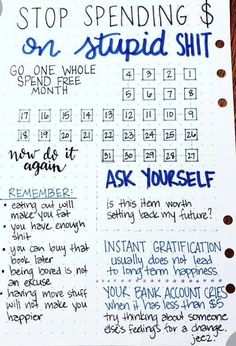 STOP SPENDING $
on stupid SHIT
GO ONE WHOLE
SPEND FREE
MONTH
4 3 2 1
5 6 7 8
12 11 10 9
17 16 15 14 13
18 19 20 21 22
26 25 24 23
31 30 28 27
now do it
again
ASK YOURSELF
REMEMBER:
• eating out will
make you fat
• you have enough
shit
• you can buy that
book later
• being bored is not
an excuse
• having more stuff
will not make you
happier
is this item worth
setting back my future?
INSTANT GRATIFICATION
usually does not lead
to long term happiness
YOUR BANK ACCOUNT CRIES
when it has less than $5
try thinking about someone
else's feelings for a change,
jeez.